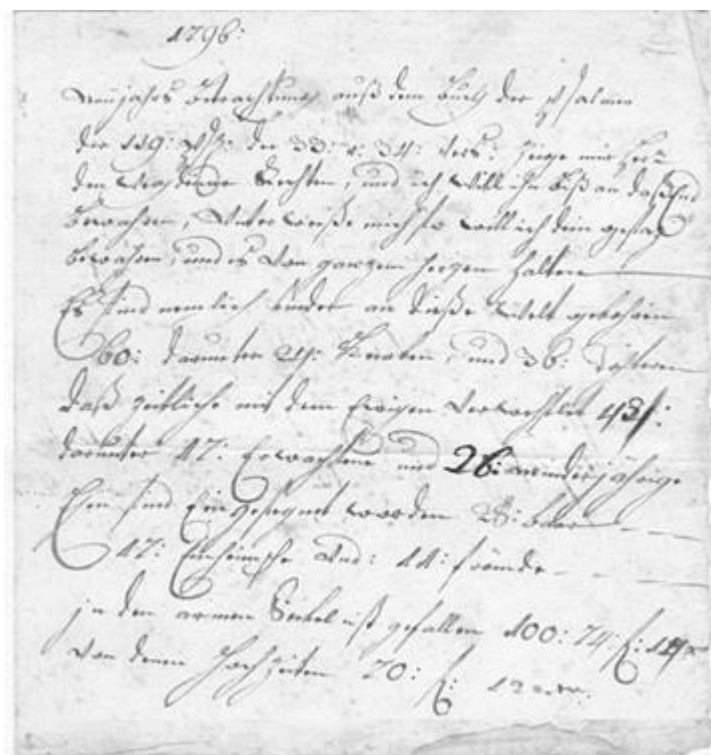 1796:
Neujahrs Betrachtung auß dem Buch der Psalmen
der 119: Ps: der 33: u: 34: Vers: Zeige mir Herr
den Weg deiner Rechten, und ich will ihn biß an daß End
bewahren, Unterweiße mich so will ich dein gesatz
bewahren, und es von ganzem hertzen halten
Es sind nemlich Kinder an dieße Welt gebohren
60: darunter 24: Knaben, und 36: Töchteren
daß zeitliche mit dem Ewigen verwechslet 43:
darunter 17: Erwachsene und 26: minderjährige
Ehen sind Eingesegnet worden 28:
17: Einheimsche und: 11: frömde
in den armen Seckel ist gefallen 100: 74: f:
von denen Hochzeiten 70: f: 12